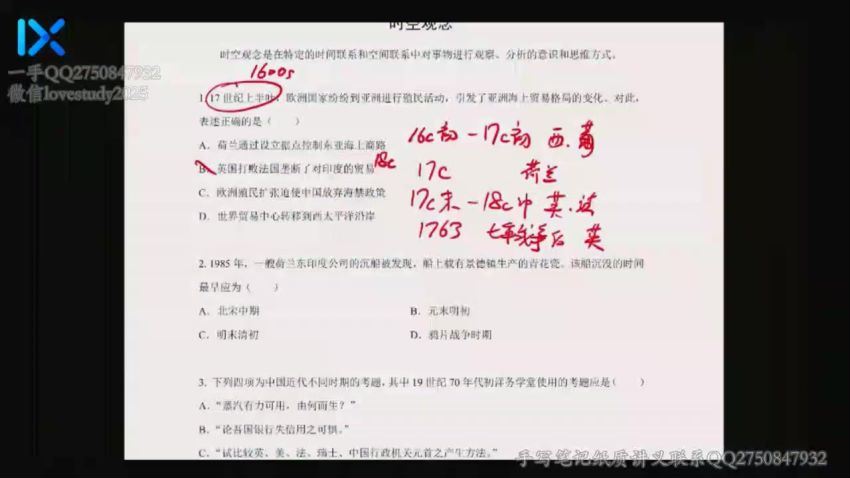 时空观念
一手QQ2750847932
微信lovestudy2025
时空观念是在特定的时间联系和空间联系中对事物进行观察、分析的意识和思维方式。
1600s
1. 17世纪上半叶，欧洲国家纷纷到亚洲进行殖民活动，引发了亚洲海上贸易格局的变化。对此，
表述正确的是（ ）
16c初-17c初 西.葡
A. 荷兰通过设立据点控制东亚海上商路
B. 英国打败法国垄断了对印度的贸易 18c
17c 荷兰
C. 欧洲殖民扩张迫使中国放弃海禁政策
17c末-18c中 英.法
D. 世界贸易中心转移到西太平洋沿岸
1763 七年战争后 英
2. 1985 年，一艘荷兰东印度公司的沉船被发现，船上载有景德镇生产的青花瓷。该船沉没的时间
最早应为（ ）
A. 北宋中期 B. 元末明初
C. 明末清初 D. 鸦片战争时期
3. 下列四项为中国近代不同时期的考题，其中 19 世纪 70 年代初洋务学堂使用的考题应是（ ）
A. “蒸汽有力可用，由何而生？”
B. “论吾国银行失信用之可惧。”
C. “试比较英、美、法、瑞士、中国行政机关元首之产生方法。”
手写笔记纸质讲义联系QQ2750847932